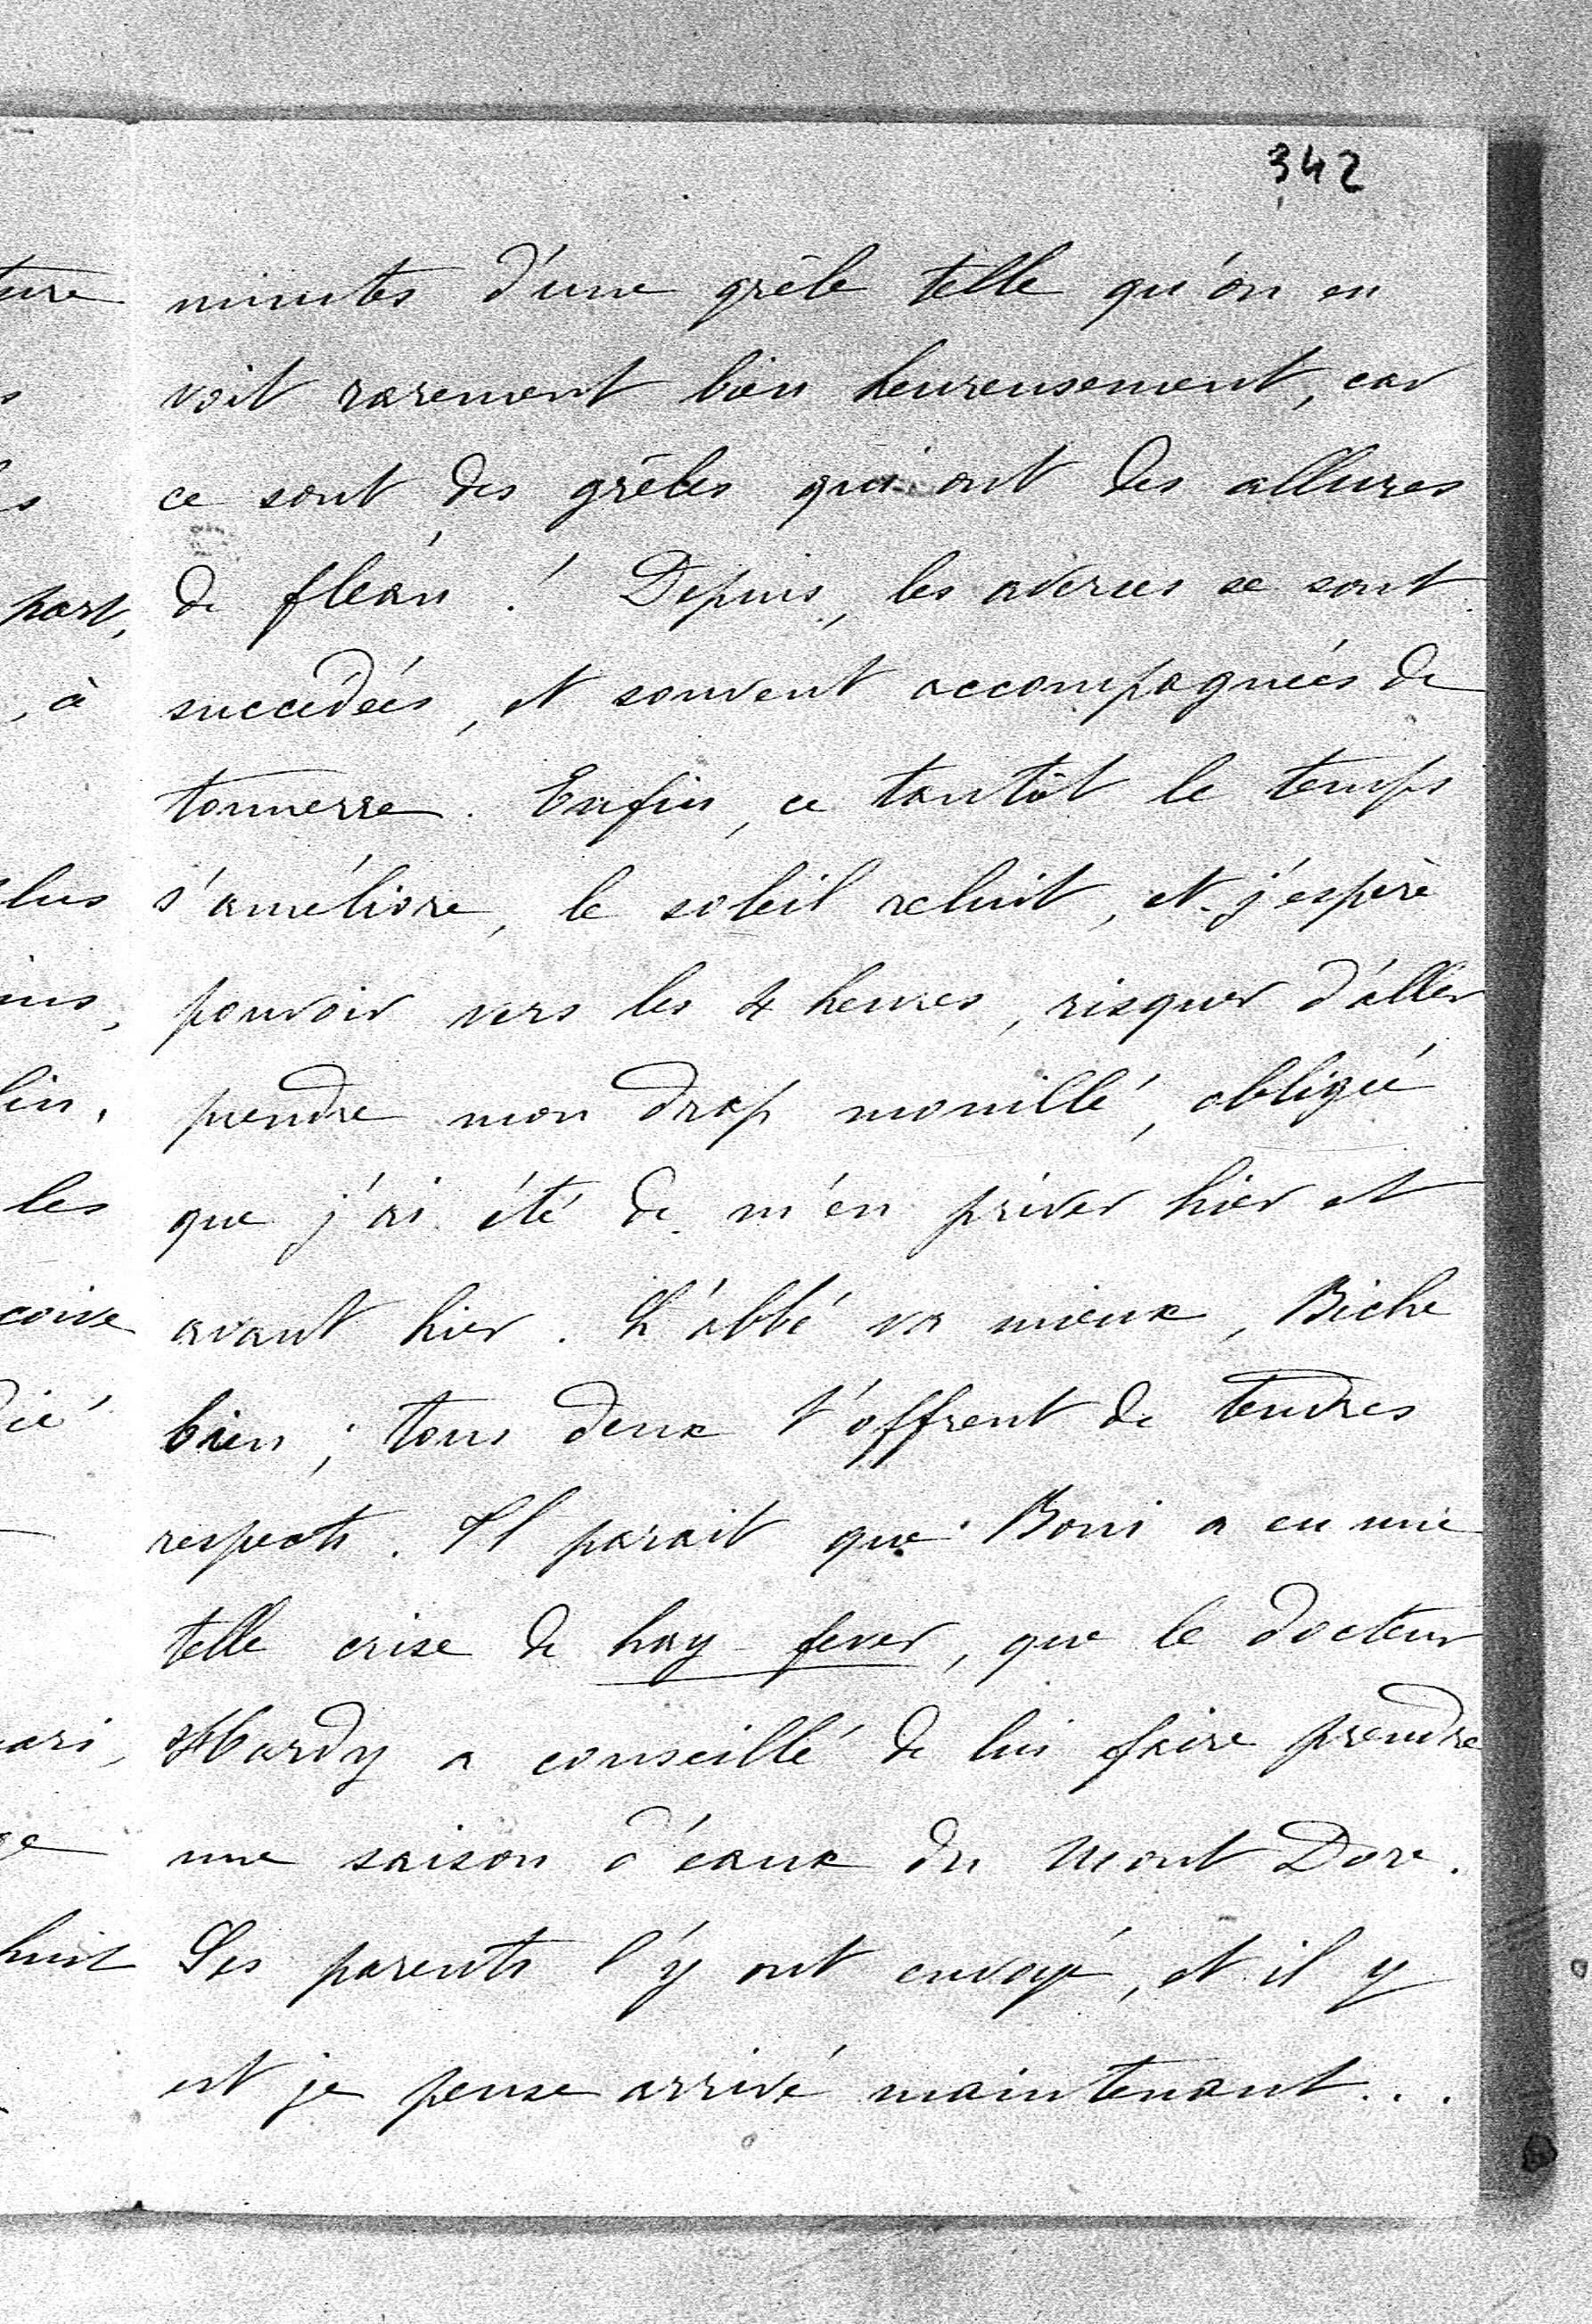 342
minutes d'une grêle telle qu'on en
voit rarement bien heureusement, car
ce sont des grêles qui ont des allures
de fléau ! Depuis, les averses se sont
succédées, et souvent accompagnées de
tonnerre. Enfin, ce tantôt le temps
s'améliore, le soleil reluit, et j'espère
pouvoir vers les 4 heures, risquer d'aller
prendre mon drap mouillé, obligée
que j'ai été de m'en priver hier et
avant hier. L'abbé va mieux, Biche
bien ; tous deux t'offrent de tendres
respects. Il parait que Boni a eu une
telle crise de hay fever, que le docteur
Hardy a conseillé de lui faire prendre
une saison d'eaux du Mont Dore.
Ses parents l'y ont envoyé, et il y
est je pense arrivé maintenant...
ture
part,
, à
lin,
les
coive
huit